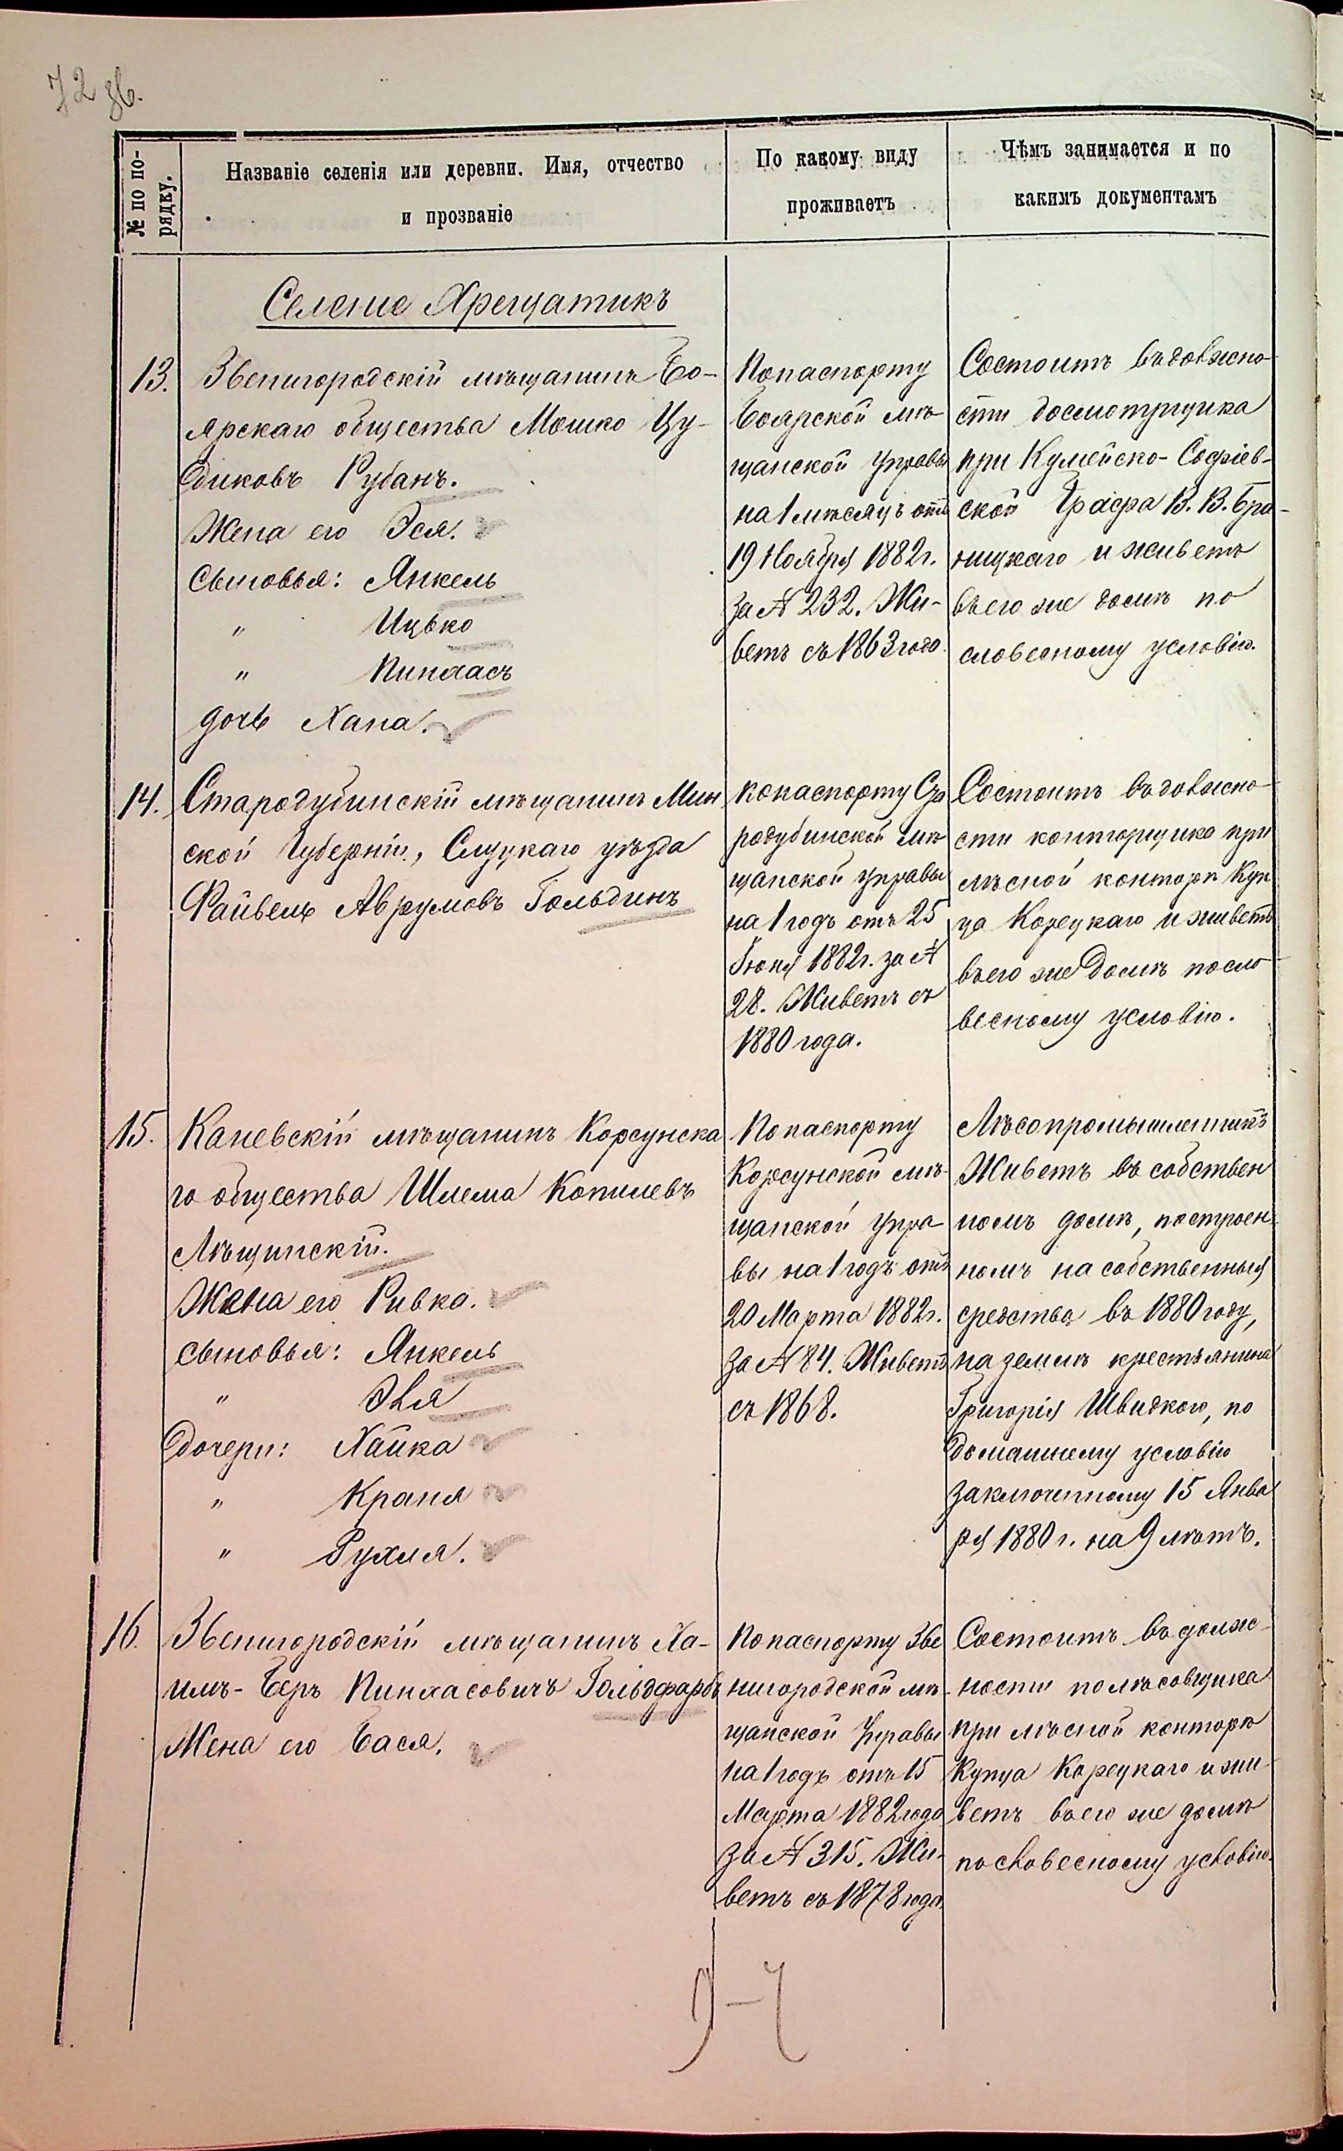 72 зв.
№ по по-
рядку.
Названіе селенія или деревни. Имя, отчество
и прозваніе
По какому виду
проживаетъ
Чѣмъ занимается и по
какимъ документамъ
Селеніе Хрещатикъ
13.
Звенигородскій мѣщанинъ Бо-
ярскаго общества Мошко Цу-
диковъ Рубанъ.
Жена его Эся.
Сыновья: Янкель
" Ицько
" Пинхасъ
дочь Хана.
По паспорту
Боярской мѣ-
щанской управы
на 1 мѣсяцъ отъ
19 Ноября 1882 г.
за № 232. Жи-
ветъ съ 1863 года.
Состоитъ въ должно-
сти досмотрщика
при Кумейско-Софіев-
ской Графа В. В. Бра-
ницкаго и живетъ
въ его же домѣ по
словесному условію.
14.
Стародубинскій мѣщанинъ Мин
ской Губерніи, Слуцкаго уѣзда
Файвель Аврумовъ Гольдинъ
по паспорту Ста
родубинской мѣ
щанской управы
на 1 годъ отъ 25
Іюня 1882 г. за №
28. Живетъ съ
1880 года.
Состоитъ въ должно-
сти конторщика при
лѣсной конторѣ Куп
ца Корецкаго и живетъ
въ его же домѣ по сло
весному условію.
15.
Каневскій мѣщанинъ Корсунска
го общества Шлема Копилевъ
Лѣщинскій.
Жена его Ривка.
Сыновья: Янкель
" Эля
Дочери: Хайка
" Краня
" Рухля.
По паспорту
Корсунской мѣ-
щанской упра
вы на 1 годъ отъ
20 Марта 1882 г.
за № 84. Живетъ
съ 1868.
Лѣсопромышленникъ
Живетъ въ собствен
номъ домѣ, построен-
номъ на собственныя
средства въ 1880 году,
на землѣ крестьянина
Григорія Швидкого, по
домашнему условію
заключенному 15 Янва
ря 1880 г. на 9 лѣтъ.
16.
Звенигородскій мѣщанинъ Ха-
имъ-Беръ Пинхасовичъ Гольдфарбъ
Жена его Бася.
По паспорту Зве
нигородской мѣ-
щанской Управы
на 1 годъ отъ 15
Марта 1882 года
за № 315. Жи-
ветъ съ 1878 года.
Состоитъ въ долж-
ности полѣсовщика
при лѣсной конторѣ
Купца Корецкаго и жи-
ветъ въ его же домѣ
по словесному условію.